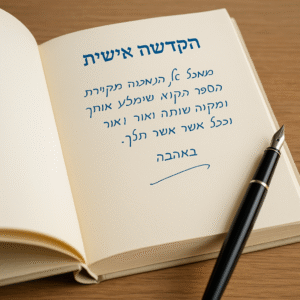 הקדשה אישית
מאכל אל הנאכנה מקוירת
הספר הקוא שימלע אותך
ומקוה שותה ואור ואור
וככל אשר אשר תלך.
באהבה